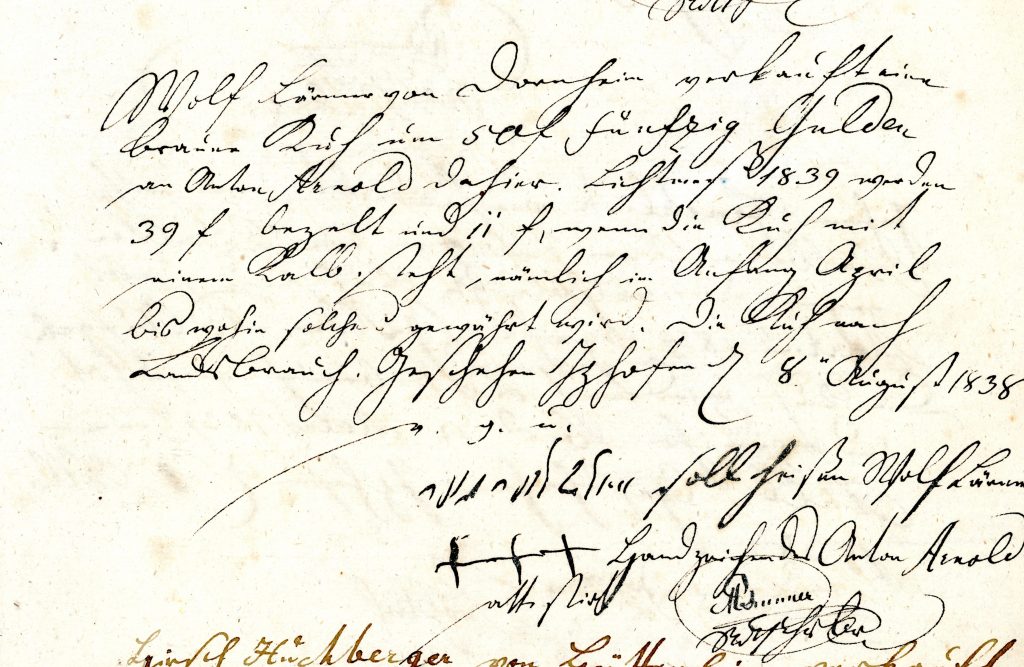 Wolf Lärmer von Dornheim verkauft eine
braune Kuh um 50 f fünfzig Gulden
an Anton Arnold dahier. Lichtmeß 1839 werden
39 f bezalt und 11 f, wenn die Kuh mit
einem Kalb steht, nämlich im Anfang April
bis wohin solches gewährt wird. Die Kuh nach
Landsbrauch. Geschehen Iphofen d 8ⁿ August 1838
v. g. u.
soll heißen Wolf Lärmer
+++ Handzeichen des Anton Arnold
attestirt
Stadtschreiber
Hirsch Huchberger von verkauft